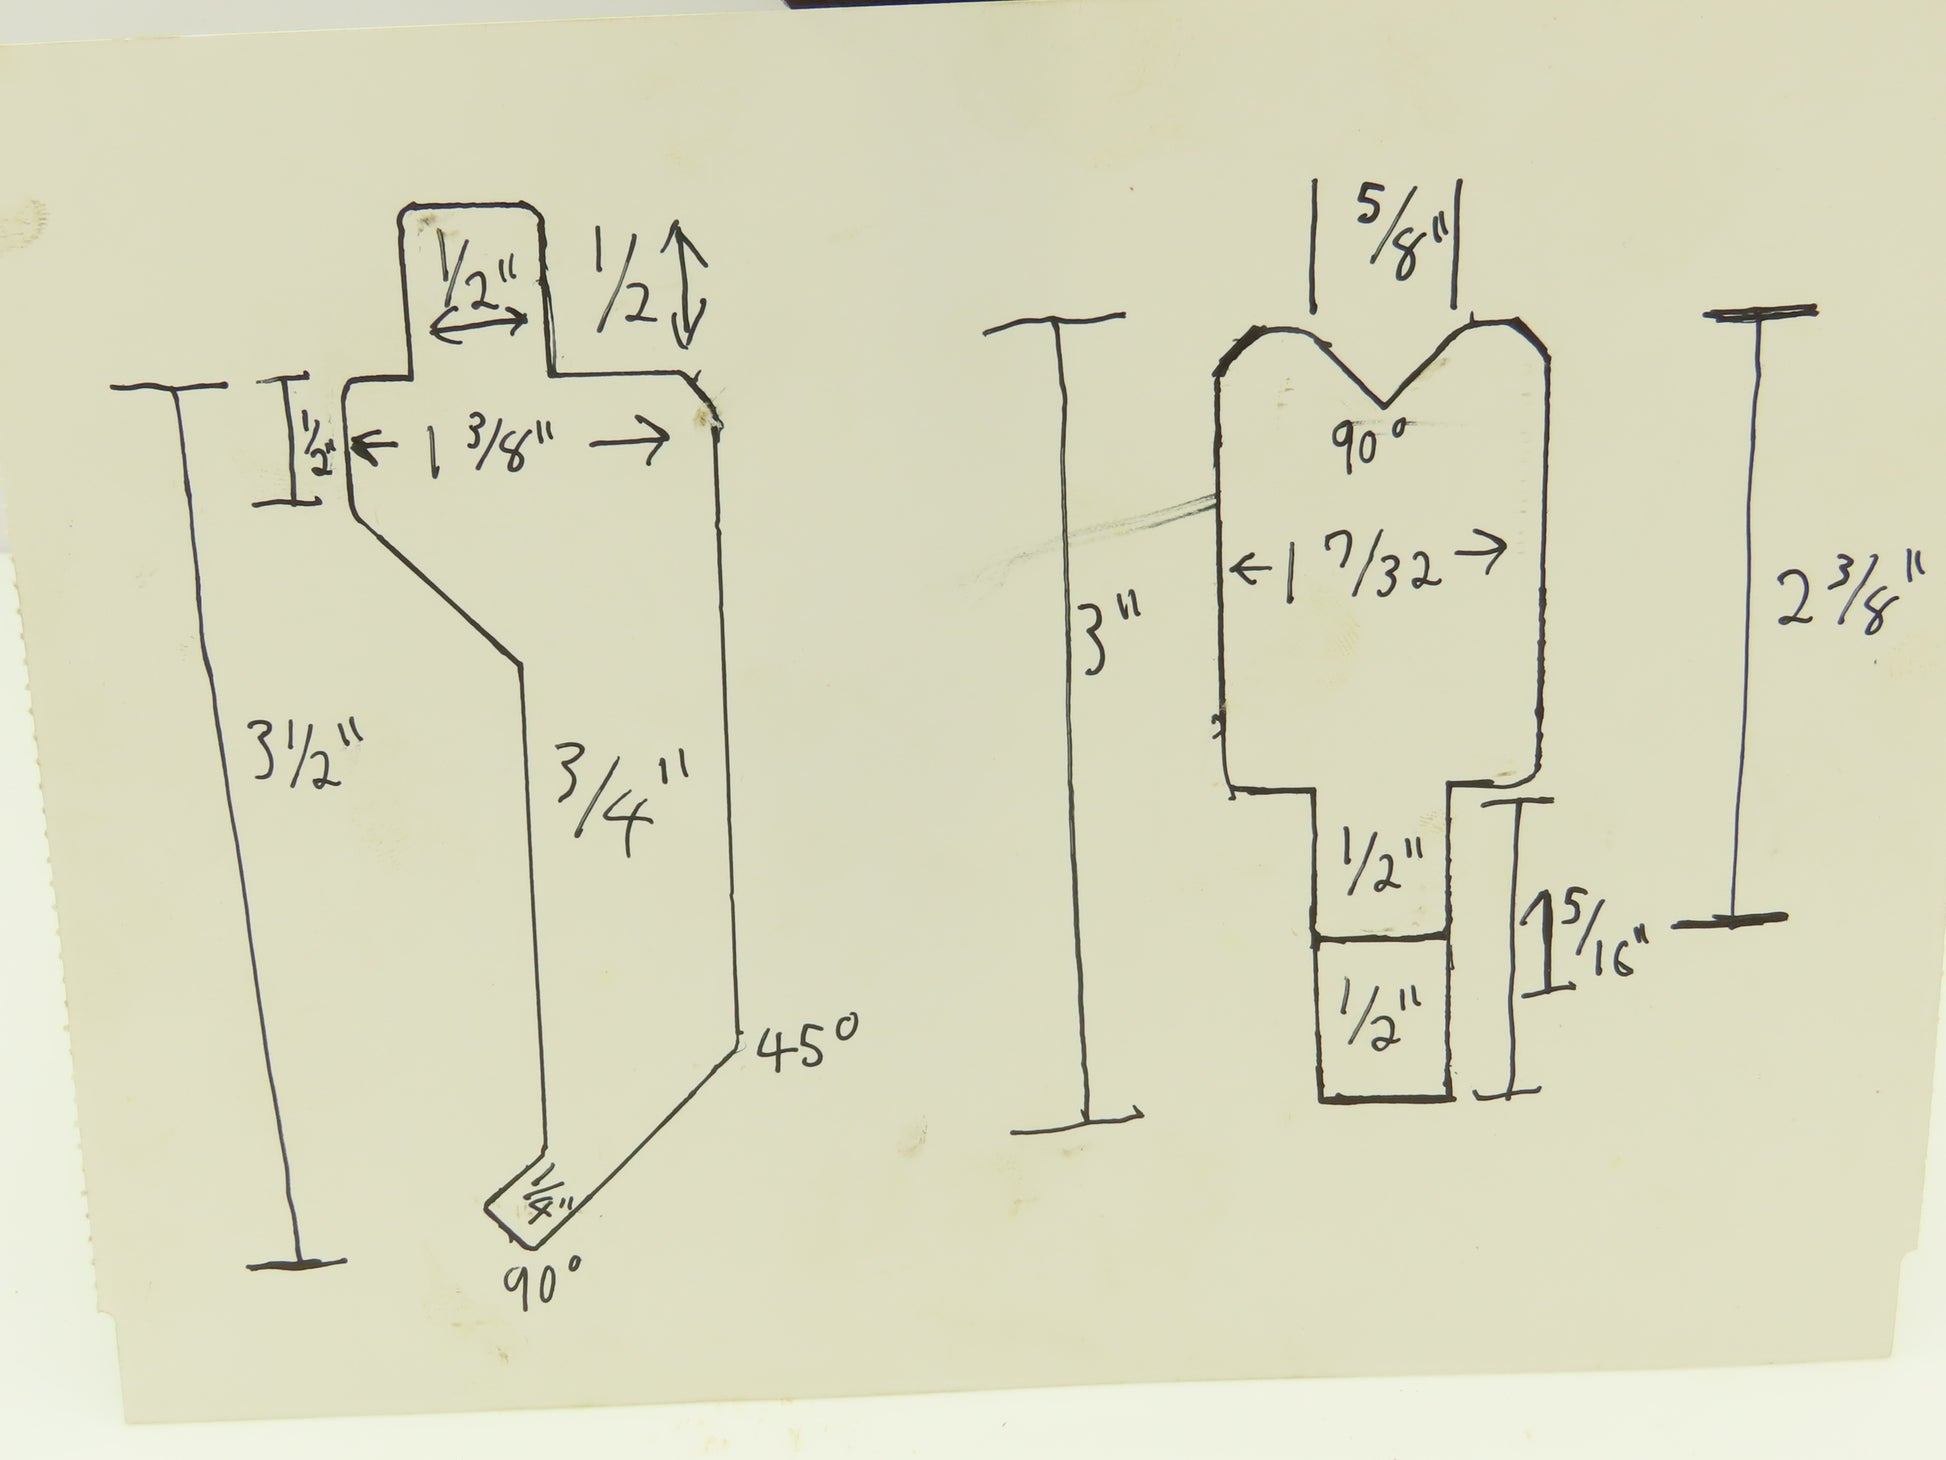 1/2"
1/2
1/2"
1 3/8"
3 1/2"
3/4"
45°
1/8"
90°
5/8"
90°
1 7/32
3"
2 3/8"
1/2"
1 5/16"
1/2"